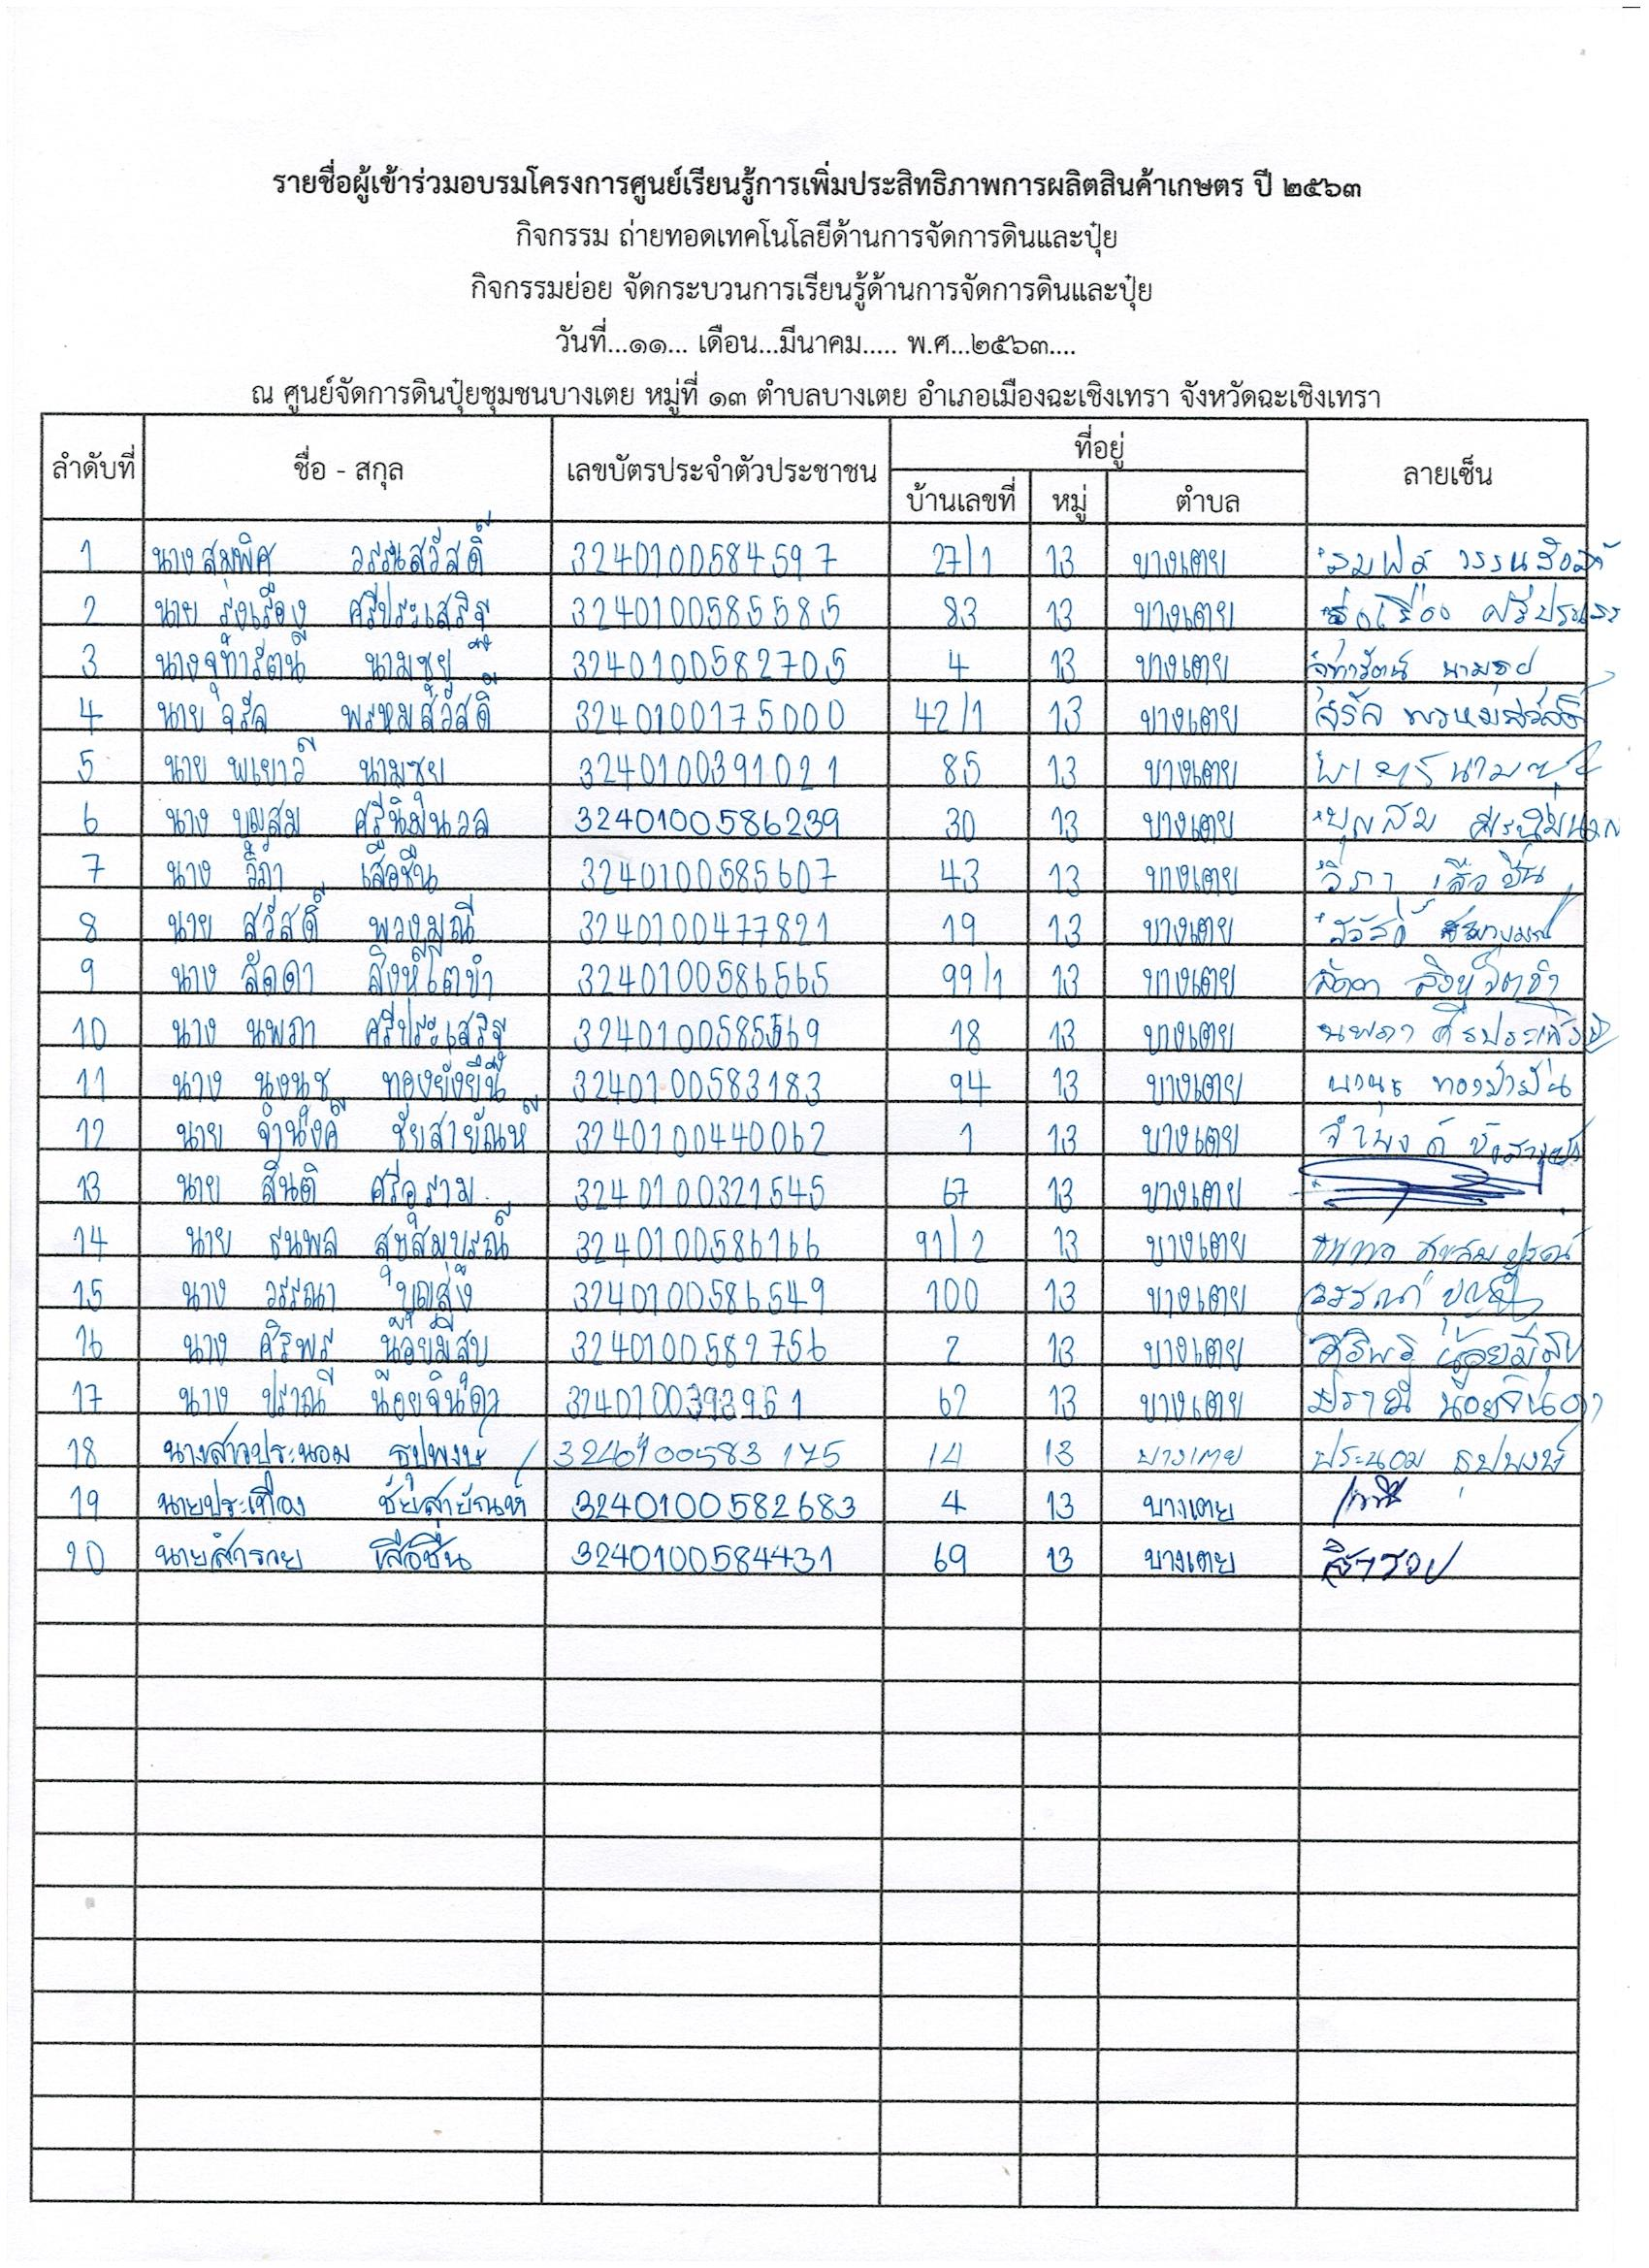 รายชื่อผู้เข้าร่วมอบรมโครงการศูนย์เรียนรู้การเพิ่มประสิทธิภาพการผลิตสินค้าเกษตร ปี ๒๕๖๓
กิจกรรม ถ่ายทอดเทคโนโลยีด้านการจัดการดินและปุ๋ย
กิจกรรมย่อย จัดกระบวนการเรียนรู้ด้านการจัดการดินและปุ๋ย
วันที่...๑๑... เดือน...มีนาคม..... พ.ศ...๒๕๖๓....
ณ ศูนย์จัดการดินปุ๋ยชุมชนบางเตย หมู่ที่ ๑๓ ตำบลบางเตย อำเภอเมืองฉะเชิงเทรา จังหวัดฉะเชิงเทรา
ลำดับที่ ชื่อ - สกุล เลขบัตรประจำตัวประชาชน ที่อยู่ ลายเซ็น
บ้านเลขที่ หมู่ ตำบล
1 นางสมพิศ วรรณสวัสดิ์ 3240100584597 27/1 13 บางเตย
2 นาย รุ่งเรือง ศรีประเสริฐ 3240100585585 83 13 บางเตย
3 นางจุฑารัตน์ นามชุย 3240100582705 4 13 บางเตย จุฑารัตน์ นามชุย
4 นาย จรัล พรหมสวัสดิ์ 3240100175000 42/1 13 บางเตย จรัล พรหมสวัสดิ์
5 นาย พเยาว์ นามชุย 3240100391021 85 13 บางเตย
6 นาง บุญสม ศรีนิ่มนวล 3240100586239 30 13 บางเตย บุญสม ศรีนิ่มนวล
7 นาง วิภา เสือชื่น 3240100585607 43 13 บางเตย วิภา เสือชื่น
8 นาย สวัสดิ์ พวงมณี 3240100477821 19 13 บางเตย
9 นาง ลัดดา สิงห์โตขำ 3240100586565 99/1 13 บางเตย ลัดดา สิงห์โตขำ
10 นาง นพภา ศรีประเสริฐ 3240100585569 18 13 บางเตย นพภา ศรีประเสริฐ
11 นาง นงนุช ทองยั่งยืน 3240100583183 94 13 บางเตย
12 นาย จำนงค์ ชัยสายัณห์ 3240100440062 1 13 บางเตย
13 นาย สันติ ศรีอุราม 3240100321545 67 13 บางเตย
14 นาย ธนพล สุขสมบูรณ์ 3240100586166 91/2 13 บางเตย
15 นาง วรรณา บุญส่ง 3240100586549 100 13 บางเตย
16 นาง ศิริพร น้อยมีสุข 3240100582756 2 13 บางเตย ศิริพร น้อยมีสุข
17 นาง ปราณี น้อยจินดา 3240100393961 62 13 บางเตย ปราณี น้อยจินดา
18 นางสาวประนอม ธูปพงษ์ 3240100583175 14 13 บางเตย ประนอม ธูปพงษ์
19 นายประเทือง ชัยสายัณห์ 3240100582683 4 13 บางเตย
20 นายสำรวย เสือชื่น 3240100584431 69 13 บางเตย สำรวย